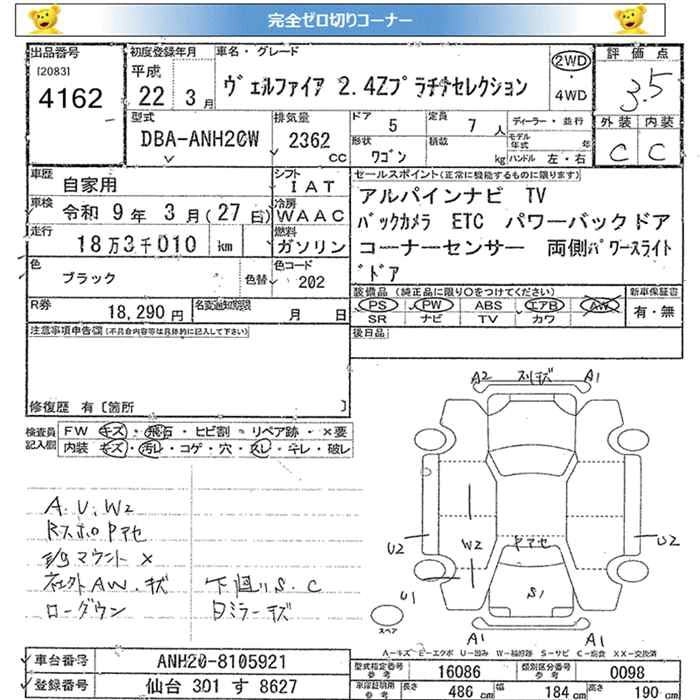 完全ゼロ切りコーナー
出品番号 初度登録年月 車名・グレード 評価点
[2083] 平成 2WD
4162 22 3月 ヴェルファイア 2.4Zプラチナセレクション ・ 3.5
4WD
型式 排気量 ドア 定員 ディーラー・並行 外装 内装
DBA-ANH20W 2362 CC 5 7人 モデル年式 年 C C
形状 積載 ハンドル 左・右
ワゴン kg
車歴 自家用 シフト IAT セールスポイント(正常に機能するものに限ります)
車検 令和 9年 3月(27日) 冷房 WAAC アルパインナビ TV
バックカメラ ETC パワーバックドア
走行 18万3千010 km 燃料 ガソリン コーナーセンサー 両側パワースライト
゙ドア
色 ブラック 色替 色コード 202
装備品(純正品に限り○をつけてください) 新車保証書
R券 18,290円 名変通知期限 月 日 PS PW ABS エアB AW 有・無
SR ナビ TV カワ
注意事項申告欄(不具合内容等は具体的に記入して下さい) 後日品
修復歴 有[箇所 ]
検査員記入欄 FW キズ・飛石・ヒビ割・リペア跡・×要
内装 キズ・汚レ・コゲ・穴・スレ・キレ・破レ
A2 スリキズ A1
A.U.W2
Rスポロ Pアセ
シミ マウント ×
社外AW.キズ 下廻りS.C
ローダウン 日ミラーキズ
U2 W2 Pアセ U2
U1 S1
スペア
A1 A1
A-キズ E-エクボ U-凹み W-補修跡 S-サビ C-腐食 XX-交換済
車台番号 ANH20-8105921 型式指定番号 参考 16086 類別区分番号 参考 0098
登録番号 仙台 301 す 8627 車庫証明用 参考 長さ 486 cm 幅 184 cm 高さ 190 cm